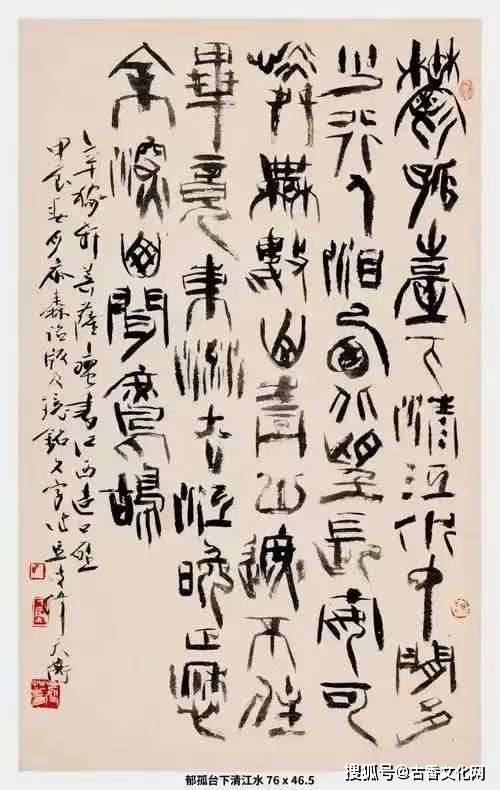 鬱孤臺下清江水中間多
少行人泪西北望長安可
憐無數山青山遮不住
畢竟東流去江晚正愁
余深山聞鷓鴣
辛稼軒菩薩蠻書江西造口壁
郁孤台下清江水 76 x 46.5
搜狐号@古香文化网